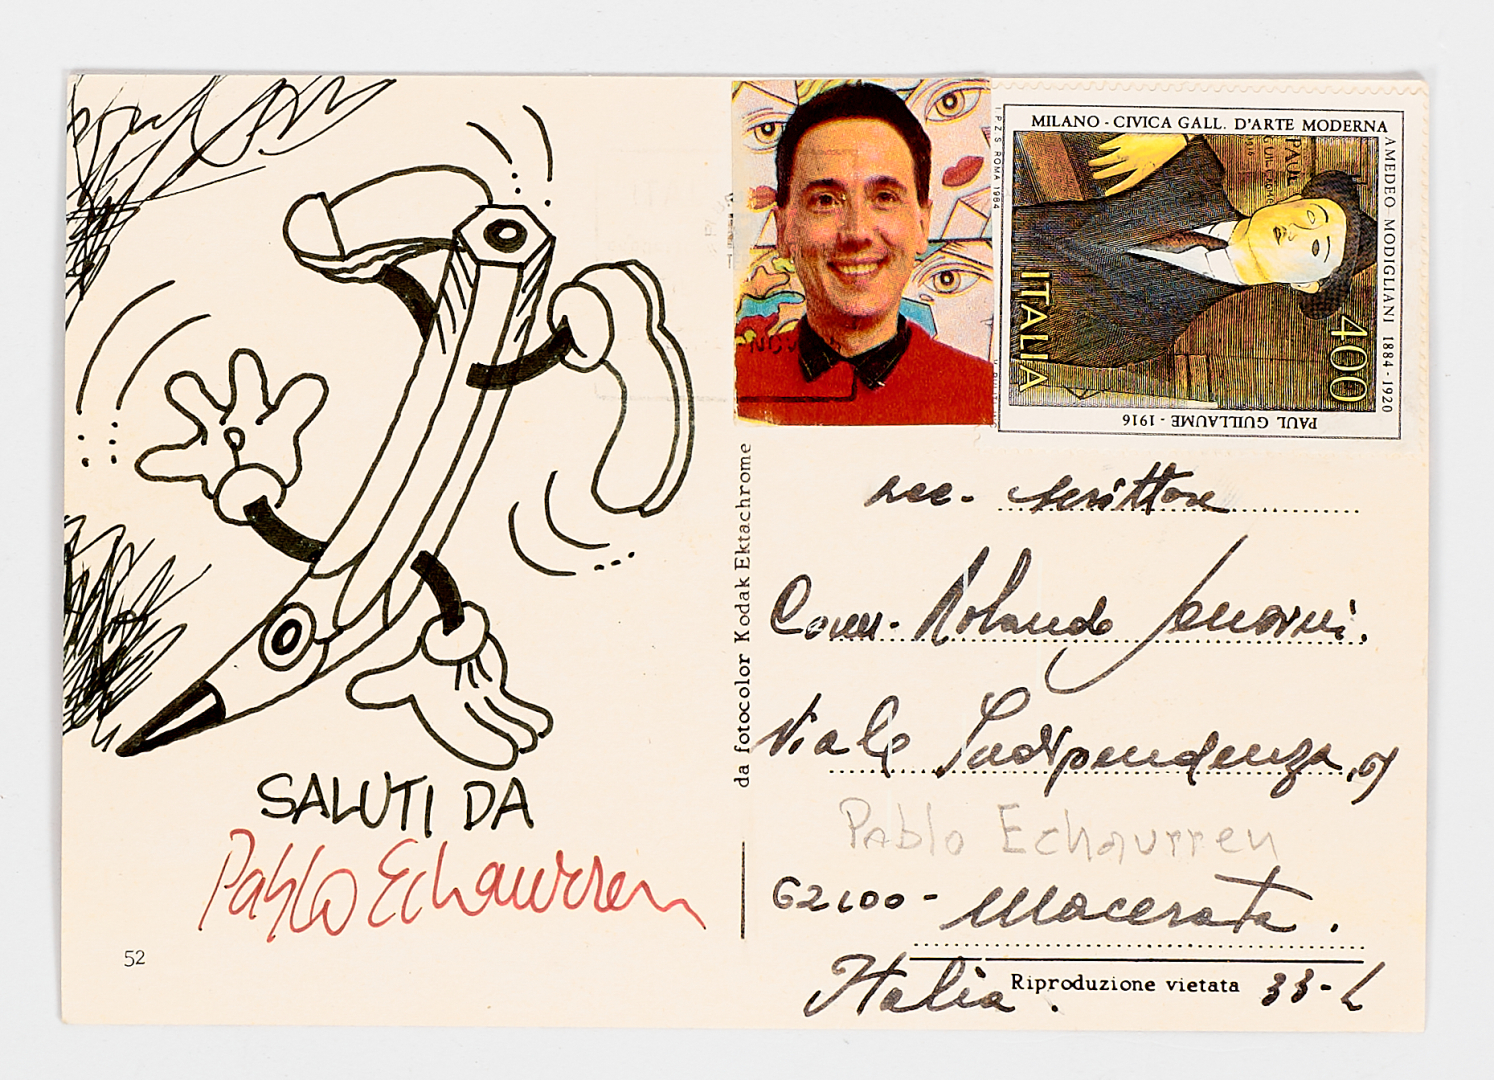 SALUTI DA
Pablo Echaurren
52
da fotocolor Kodak Ektachrome
I.P.Z.S. ROMA 1984
MILANO - CIVICA GALL. D'ARTE MODERNA
AMEDEO MODIGLIANI 1884 - 1920
PAUL GUILLAUME - 1916
ITALIA
400
NOV
scrittore
Rolando
Viale Indipendenza,
Pablo Echaurren
62100 - Macerata.
Italia.
Riproduzione vietata